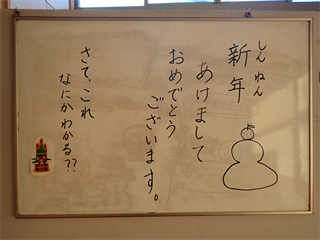 しんねん
新年
あけまして
おめでとう
ございます。
さて、これ
なにかわかる??